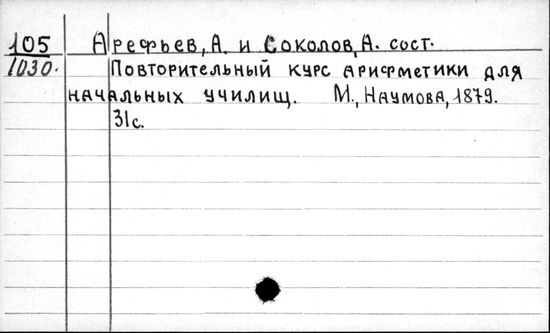 105 Арефьев, А. и Соколов, А. сост.
1030. Повторительный курс арифметики для
начальных училищ. М., Наумова, 1879.
31с.